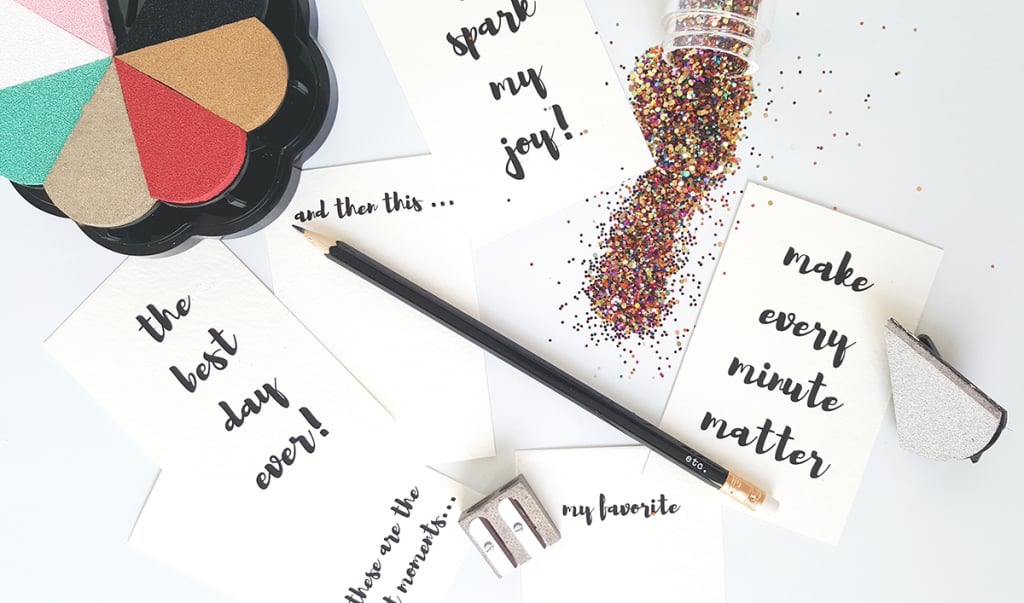 spark
my
joy!
and then this ...
the
best
day
ever!
make
every
minute
matter
etc.
my favorite
these are the
moments...